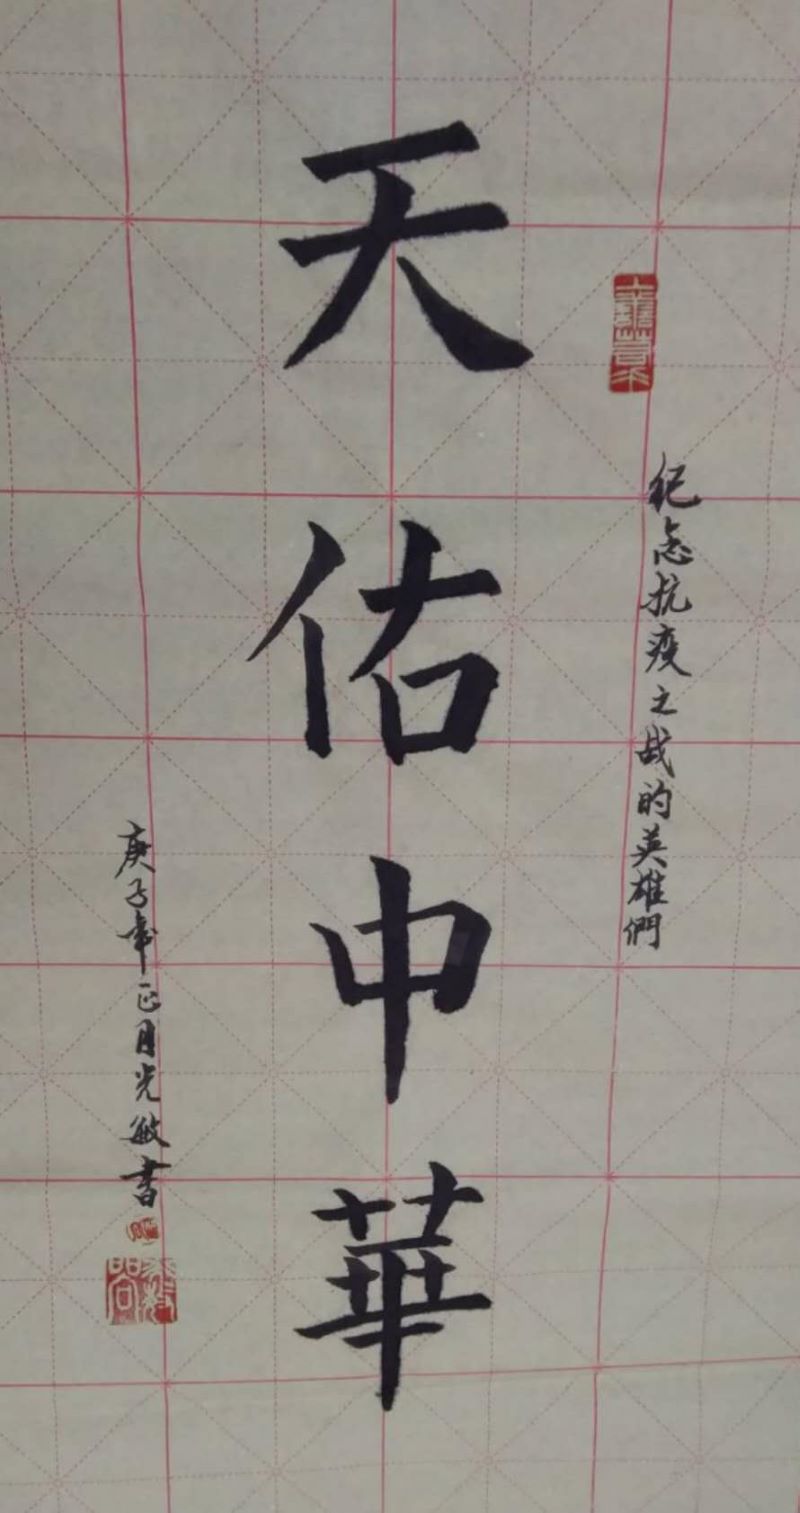 天佑中華
纪念抗疫之战的英雄們
庚子年正月光敏書